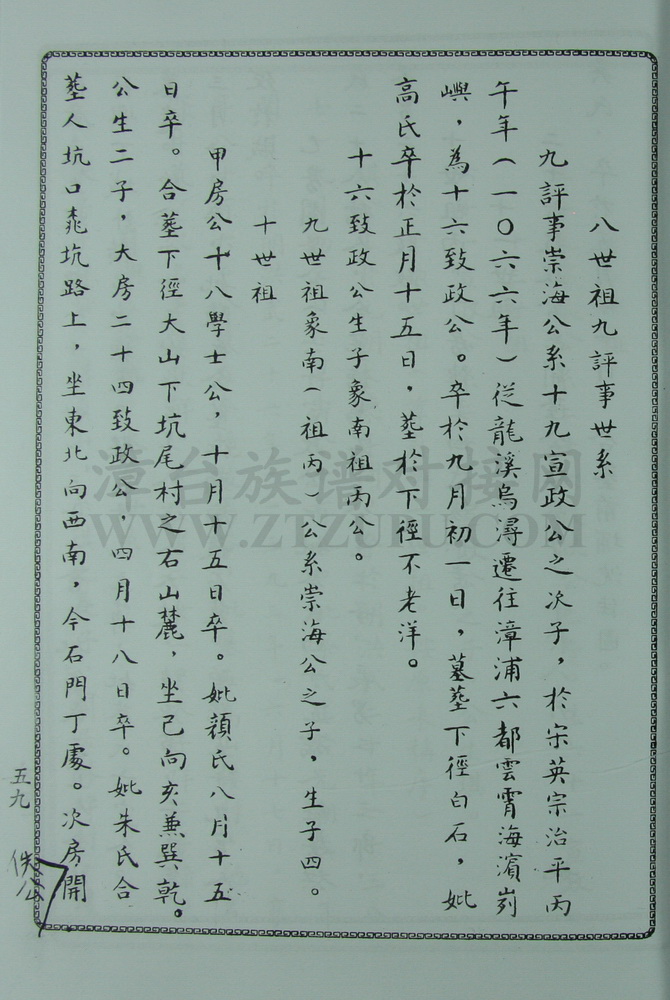 八世祖九評事世系
九評事崇海公系十九宣政公之次子，於宋英宗治平丙
午年（一〇六六年）從龍溪烏潯遷往漳浦六都雲霄海濱峛
嶼，為十六致政公。卒於九月初一日，墓塟下徑白石，妣
高氏卒於正月十五日，塟於下徑不老洋。
十六致政公生子象南祖丙公。
九世祖象南（祖丙）公系崇海公之子，生子四。
十世祖
甲房公十八學士公，十月十五日卒。妣顏氏八月十五
日卒。合塟下徑大山下坑尾村之右山麓，坐己向亥兼巽乾。
公生二子，大房二十四致政公，四月十八日卒。妣朱氏合
塟人坑口坑路上，坐東北向西南，今石門丁處。次房開
五九
佚公
漳台族谱对接网
WWW.ZTZUPU.COM